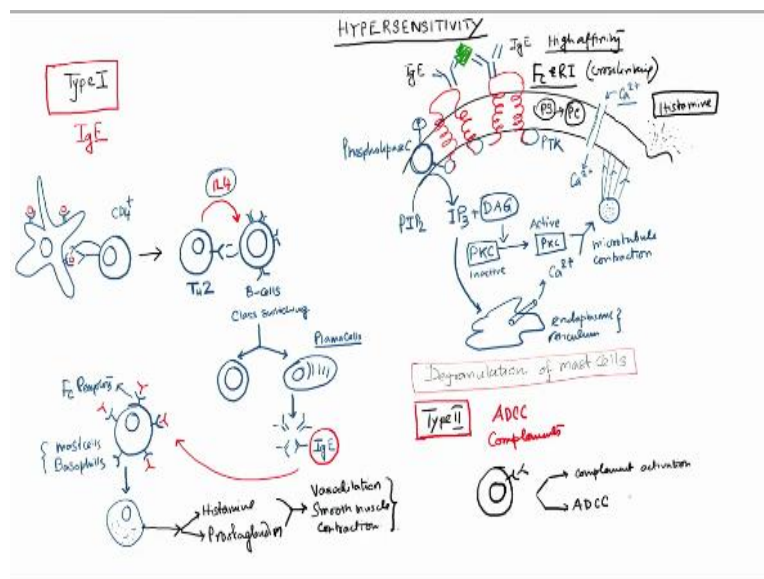 HYPERSENSITIVITY
Type I
IgE
CD4+
IL4
TH2
B-cells
Class switching
Plasma Cells
IgE
Fc Receptors
mast cells
Basophils
Histamine
Prostaglandin
Vasodilation
Smooth muscle
Contraction
IgE
IgE
High affinity
FcεRI (crosslinking)
PS → PC
Ca2+
Histamine
Phospholipase C
PTK
Ca2+
PIP2
IP3 + DAG
PKC
Inactive
Active
PKC
Ca2+
microtubule
contraction
endoplasmic
reticulum
Degranulation of mast cells
Type II
ADCC
Complements
complement activation
ADCC